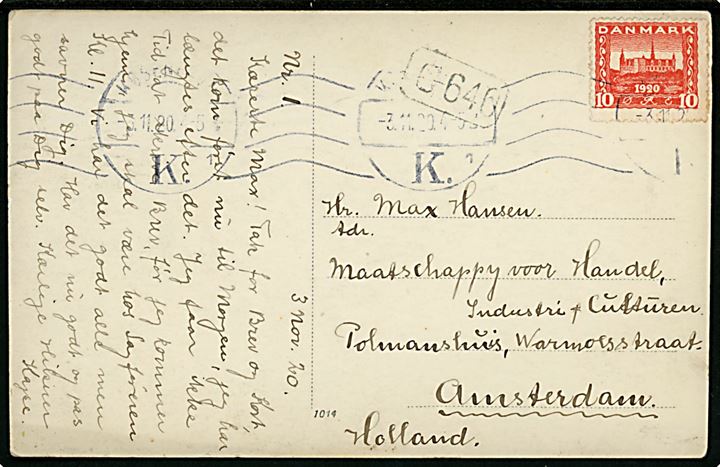 Nr. 1
3 Nov. 20.
Kæreste Max! Tak for Brev og Kort,
det kom først nu til Morgen, jeg har
længtes efter det. Jeg faar ikke
Tid at Brev, før jeg kommer
hjem, jeg skal være hos Sagføreren
Kl. 11, Vi har det godt all men
savner Dig. Hav det nu godt og pas
godt paa Dig selv. Kærlige Hilsner
DANMARK
1920
10 10
646
-3.11.20.4-5
K.
3.11.20.4-5
K.
-3.11.2
Hr. Max Hansen.
Adr.
Maatschappy voor Handel,
Industri & Culturen
Polmanshuis, Warmoesstraat
Amsterdam.
Holland.
1014